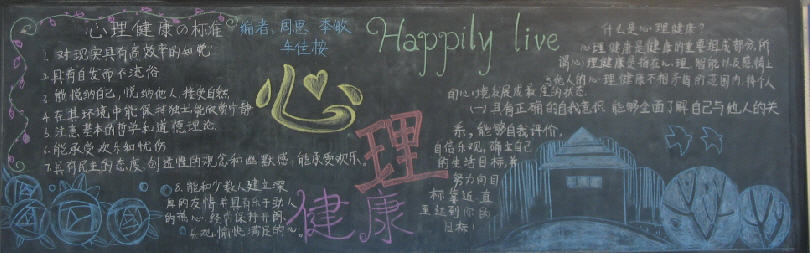 心理健康の标准
编者：周思 季敏
Happily live
1. 对现实具有高效率的知觉
2. 具有自发而不流俗
3. 能悦纳自己，悦纳他人，接受自然
4. 在其环境中能保持独立，能欣赏宁静
5. 注意基本的哲学和道德理论
6. 能承受欢乐和忧伤
7. 具有民主的态度，创造性的观念和幽默感，能承受欢乐，
8. 能和少数人建立深
厚的友情并具有乐于助人
的热心，经常保持开阔、
乐观、愉快满足的心。
心理健康
什么是心理健康？
心理健康是健康的重要组成部分，所
谓心理健康是指在心理、智能以及感情上
与他人的心理健康不相矛盾的范围内，将个人
心境发展成最佳的状态。
(一)具有正确的自我意识 能够全面了解自己与他人的关
系，能够自我评价，
自信乐观，确立自己
的生活目标，并
努力向目
标靠近直
至达到你的
目标！